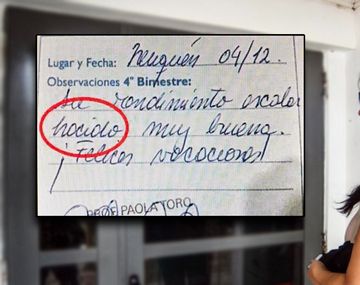 Lugar y Fecha: Neuquén 04/12.
Observaciones 4° Bimestre:
Su rendimiento escolar
hacido muy buena.
¡Felices vacaciones!
PROF. PAOLA TORO